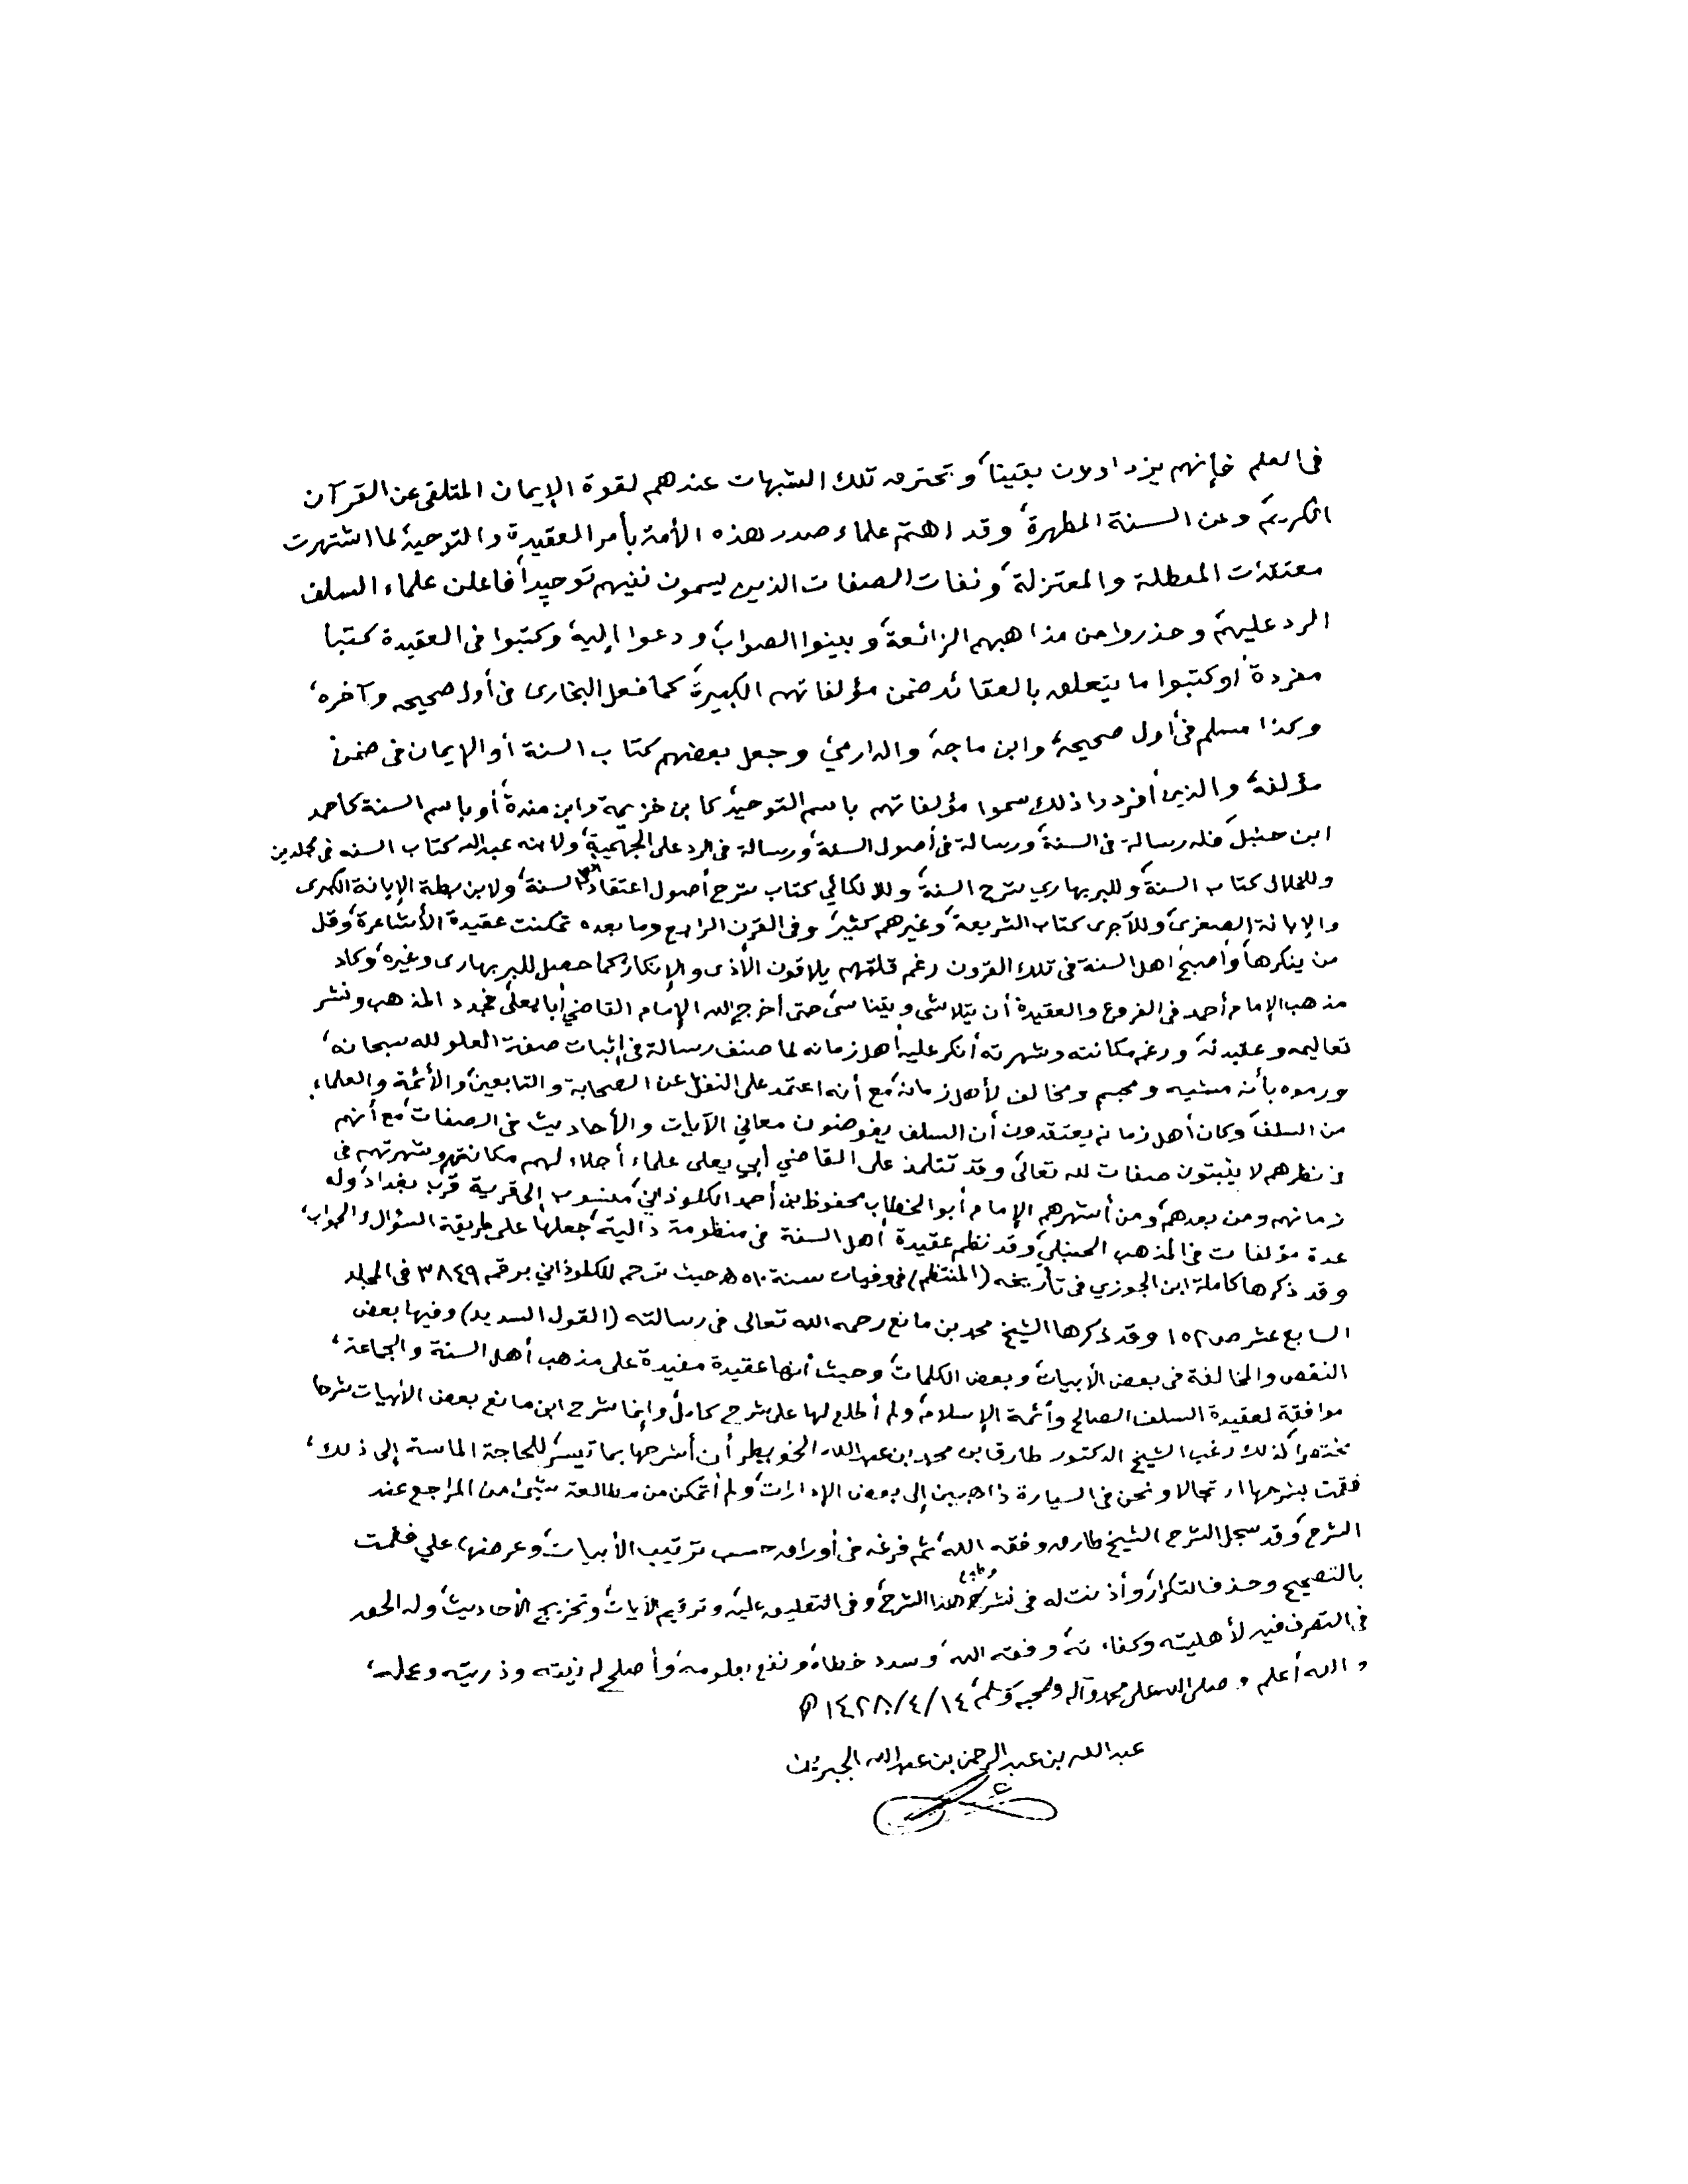 في العلم فإنهم يزدادون يقينا، وتحترق تلك الشبهات عندهم لقوة الإيمان المتلقى عن القرآن
الكريم، وعن السنة المطهرة، وقد اهتم علماء صدر هذه الأمة بأمر العقيدة والتوحيد، لما اشتهرت
معتقدات المعطلة والمعتزلة، ونفات الصفات الذين يسمون نفيهم توحيدا، فأعلن علماء السلف
الرد عليهم، وحذروا من مذاهبهم الزائغة، وبينوا الصواب، ودعوا إليه، وكتبوا في العقيدة كتبا
مفردة، أو كتبوا ما يتعلق بالعقائد ضمن مؤلفاتهم الكبيرة، كما فعل البخاري في أول صحيحه وآخره،
وكذا مسلم في أول صحيحه، وابن ماجه، والدارمي، وجعل بعضهم كتاب السنة أو الإيمان في ضمن
مؤلفه، والذين أفردوا ذلك سموا مؤلفاتهم باسم التوحيد، كابن خزيمة وابن مندة، أو باسم السنة كأحمد
ابن حنبل، فله رسالة في السنة، ورسالة في أصول السنة، ورسالة في الرد على الجهمية، ولابنه عبدالله كتاب السنه في مجلدين
وللخلال كتاب السنة، وللبربهاري شرح السنة، وللالكائي كتاب شرح أصول اعتقاد أهل السنة، ولابن بطة الإبانة الكبرى
والإبانة الصغرى، وللآجرى كتاب الشريعة، وغيرهم كثير، وفي القرن الرابع وما بعده تمكنت عقيدة الأشاعرة، وقل
من ينكرها، وأصبح أهل السنة في تلك القرون رغم قلتهم يلاقون الأذى والإنكار، كما حصل للبربهارى وغيره، وكاد
مذهب الإمام أحمد في الفروع والعقيدة أن يتلاشى ويتناسى، حتى أخرج الله الإمام القاضي أبا يعلى، فجدد المذهب ونشر
تعاليمه وعقيدته، ورغم مكانته وشهرته أنكر عليه أهل زمانه لما صنف رسالة في إثبات صفة العلو لله سبحانه،
ورموه بأنه مشبه ومجسم ومخالف لأهل زمانه، مع أنه اعتمد على النقل عن الصحابة والتابعين، والأئمة والعلماء
من السلف، وكان أهل زمانه يعتقدون أن السلف يفوضون معاني الآيات والأحاديث في الصفات، مع أنهم
في نظرهم لا يثبتون صفات لله تعالى، وقد تتلمذ على القاضي أبي يعلى علماء أجلاء لهم مكانتهم وشهرتهم في
زمانهم ومن بعدهم، ومن أشهرهم الإمام أبو الخطاب محفوظ بن أحمد الكلوذاني، منسوب إلى قرية قرب بغداد، وله
عدة مؤلفات في المذهب الحنبلي، وقد نظم عقيدة أهل السنة في منظومة دالية، جعلها على طريقة السؤال والجواب،
وقد ذكرها كاملة ابن الجوزي في تأريخه (المنتظم) في وفيات سنة ٥١٠ هـ حيث ترجم للكلوذاني برقم ٣٨٤٩ في المجلد
السابع عشر ص ١٥٢ وقد ذكرها الشيخ محمد بن مانع رحمه الله تعالى في رسالته (القول السديد) وفيها بعض
النقص والمخالفة في بعض الأبيات، وبعض الكلمات، وحيث أنها عقيدة مفيدة على مذهب أهل السنة والجماعة،
موافقة لعقيدة السلف الصالح وأئمة الإسلام، ولم أطلع لها على شرح كامل، وإنما شرح ابن مانع بعض الأبيات شرحا
مختصرا، لذلك رغب الشيخ الدكتور طارق بن محمد بن عبدالله الخويطر أن أشرحها بما تيسر، للحاجة الماسة إلى ذلك،
فقمت بشرحها ارتجالا ونحن في السيارة ذاهبين إلى بعض الإدارات، ولم أتمكن من مطالعة شيئ من المراجع عند
الشرح، وقد سجل الشرح الشيخ طارق وفقه الله، ثم فرغه في أوراق حسب ترتيب الأبيات، وعرضها علي فقمت
بالتصحيح وحذف التكرار، وأذنت له في نشر هذا الشرح، وفي التعليق عليه، وترقيم الآيات، وتخريج الأحاديث، وله الحق
في التصرف فيه لأهليته وكفاءته، وفقه الله، وسدد خطاه، ونفع بعلومه، وأصلح له نيته وذريته وعمله،
والله أعلم وصلى الله على محمد وآله وصحبه وسلم، ١٤٢٨/٤/١٤ هـ
عبدالله بن عبدالرحمن بن عبدالله الجبرين